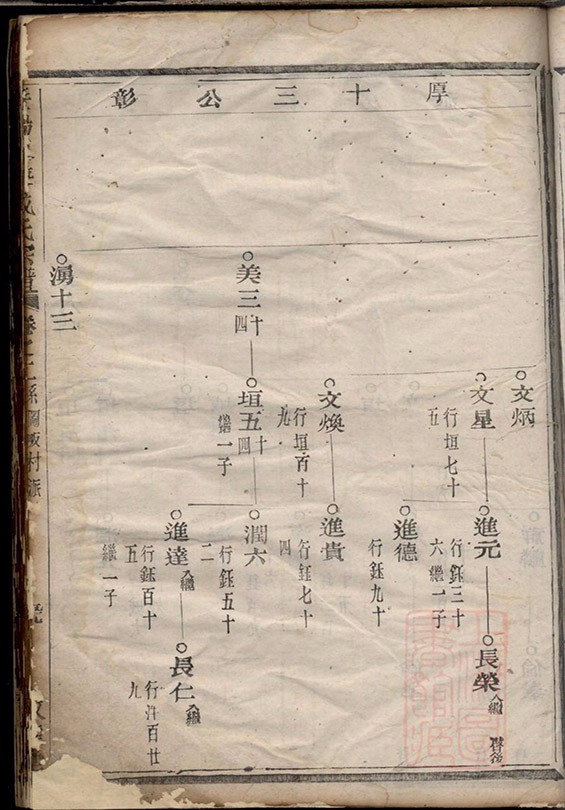 厚十三公彰
文炳
文星
行垣七十五
進元
行鈺三十六繼一子
長榮
入繼
進德
行鈺九十
文煥
行垣百十九
進貴
行鈺七十四
美三
十四
垣五
十四
繼一子
潤六
行鈺五十二
進達
入繼
行鈺百十五
繼一子
長仁
入繼
行汼百廿九
湧十三
氏宗譜
卷之二
村派